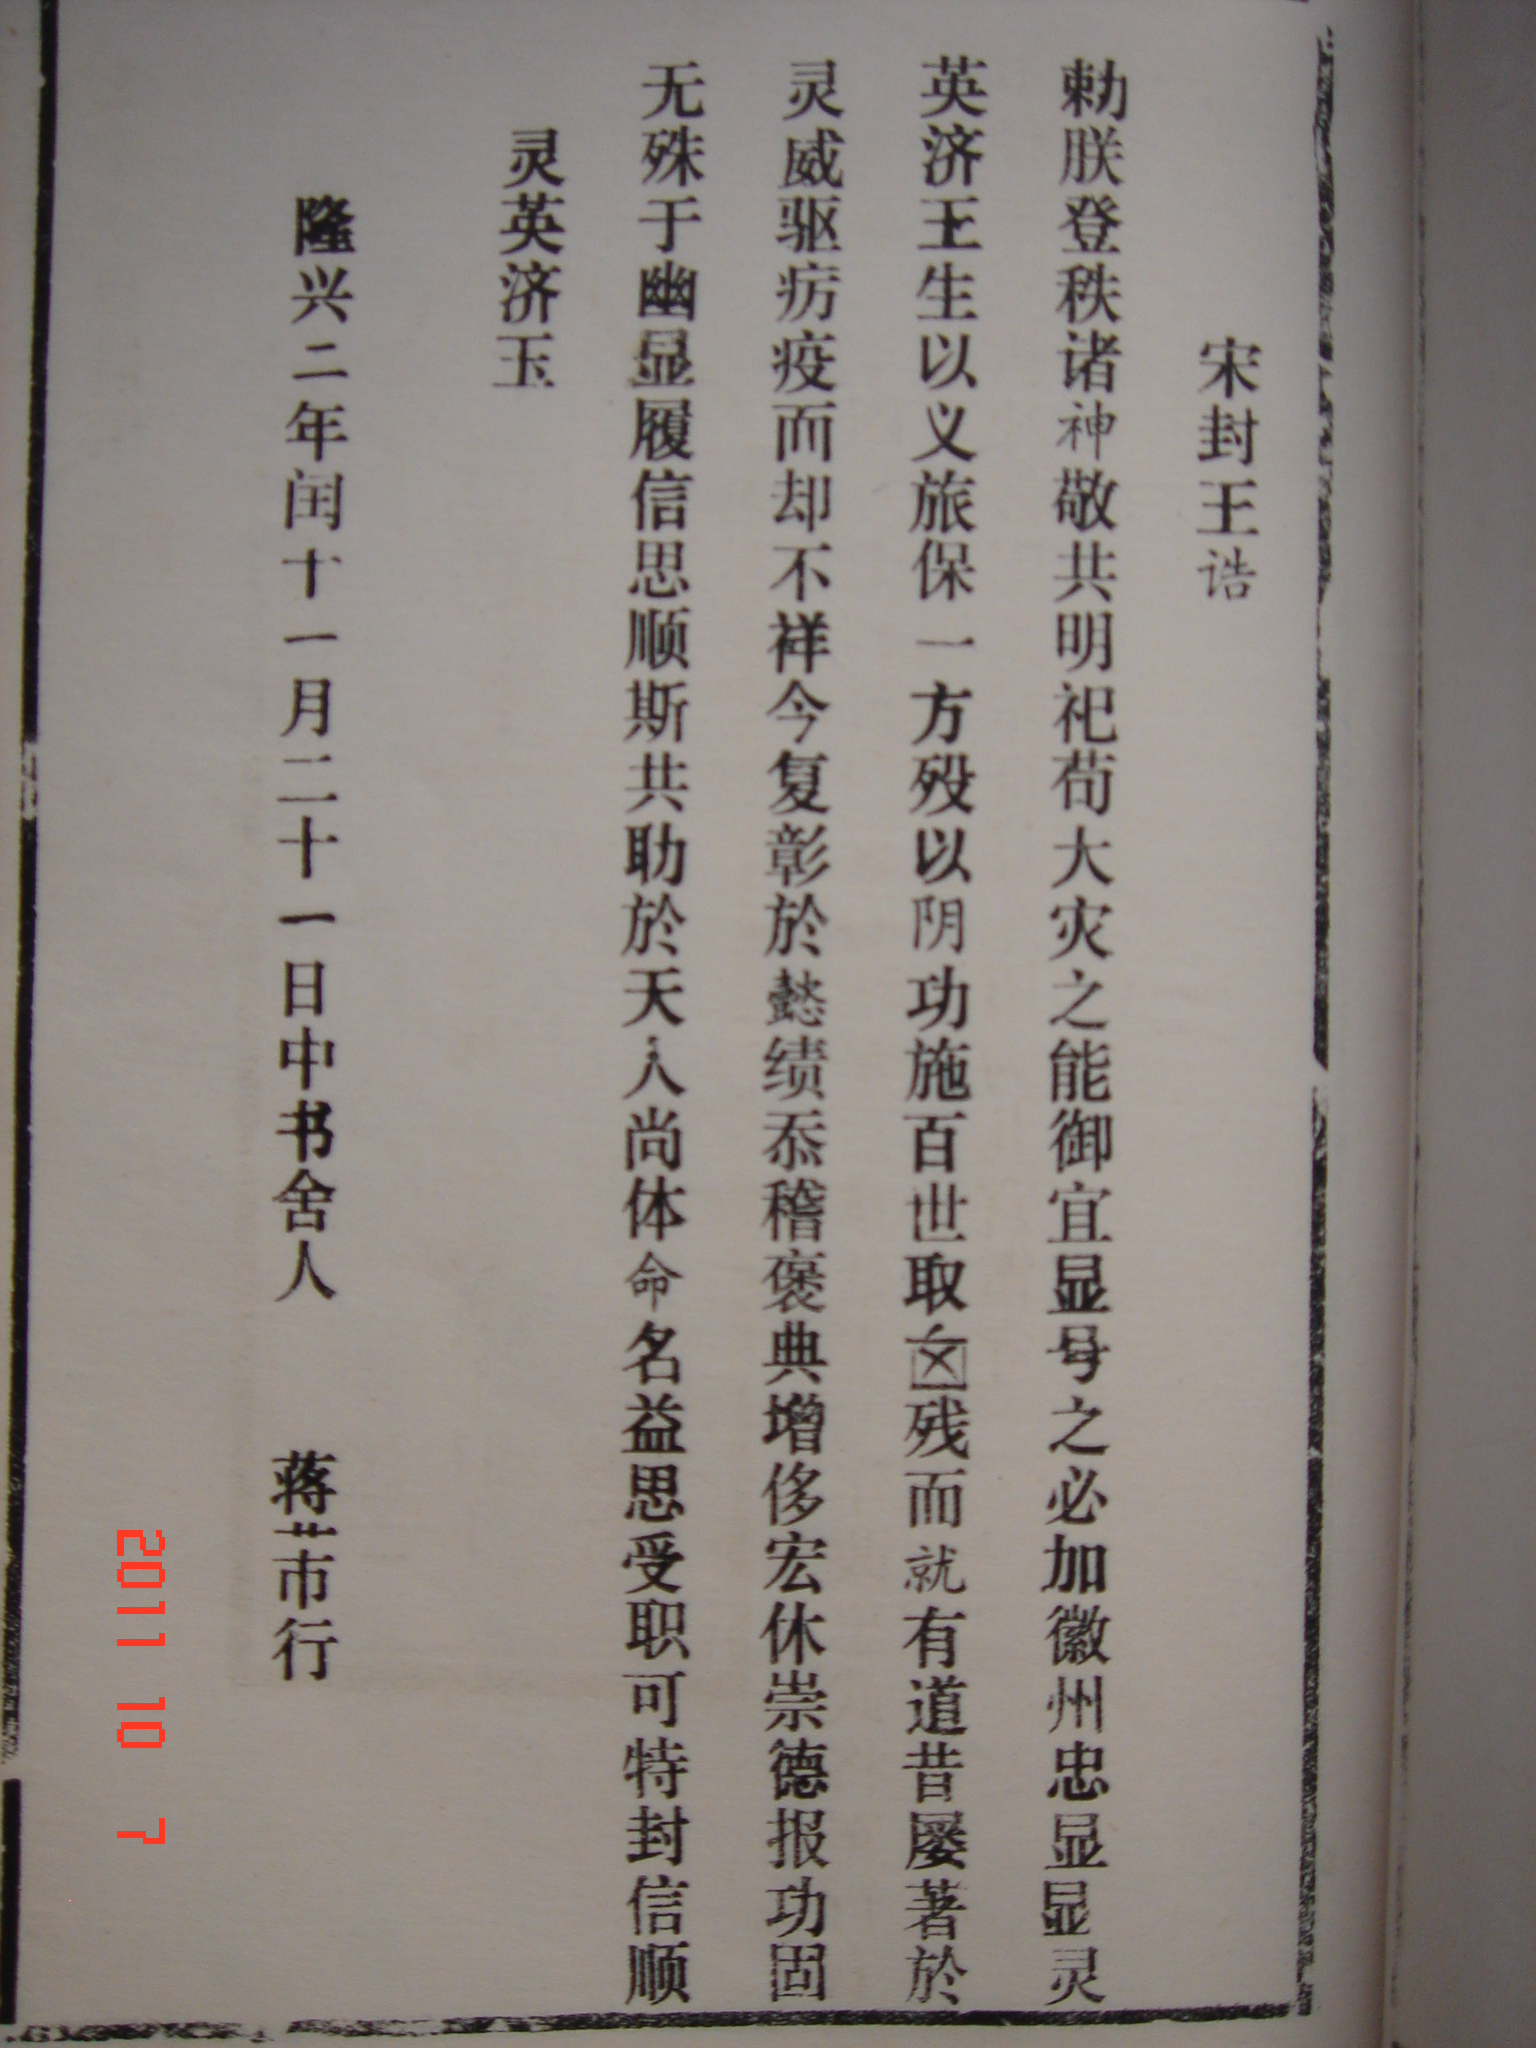 宋封王诰
勅朕登秩诸神敬共明祀苟大灾之能御宜显号之必加徽州忠显显灵
英济王生以义旅保一方殁以阴功施百世取囟残而就有道昔屡著於
灵威驱疠疫而却不祥今复彰於懿绩忝稽褒典增侈宏休崇德报功固
无殊于幽显履信思顺斯共助於天人尚体命名益思受职可特封信顺
灵英济玉
隆兴二年闰十一月二十一日中书舍人 蒋芾行
2011 10 7